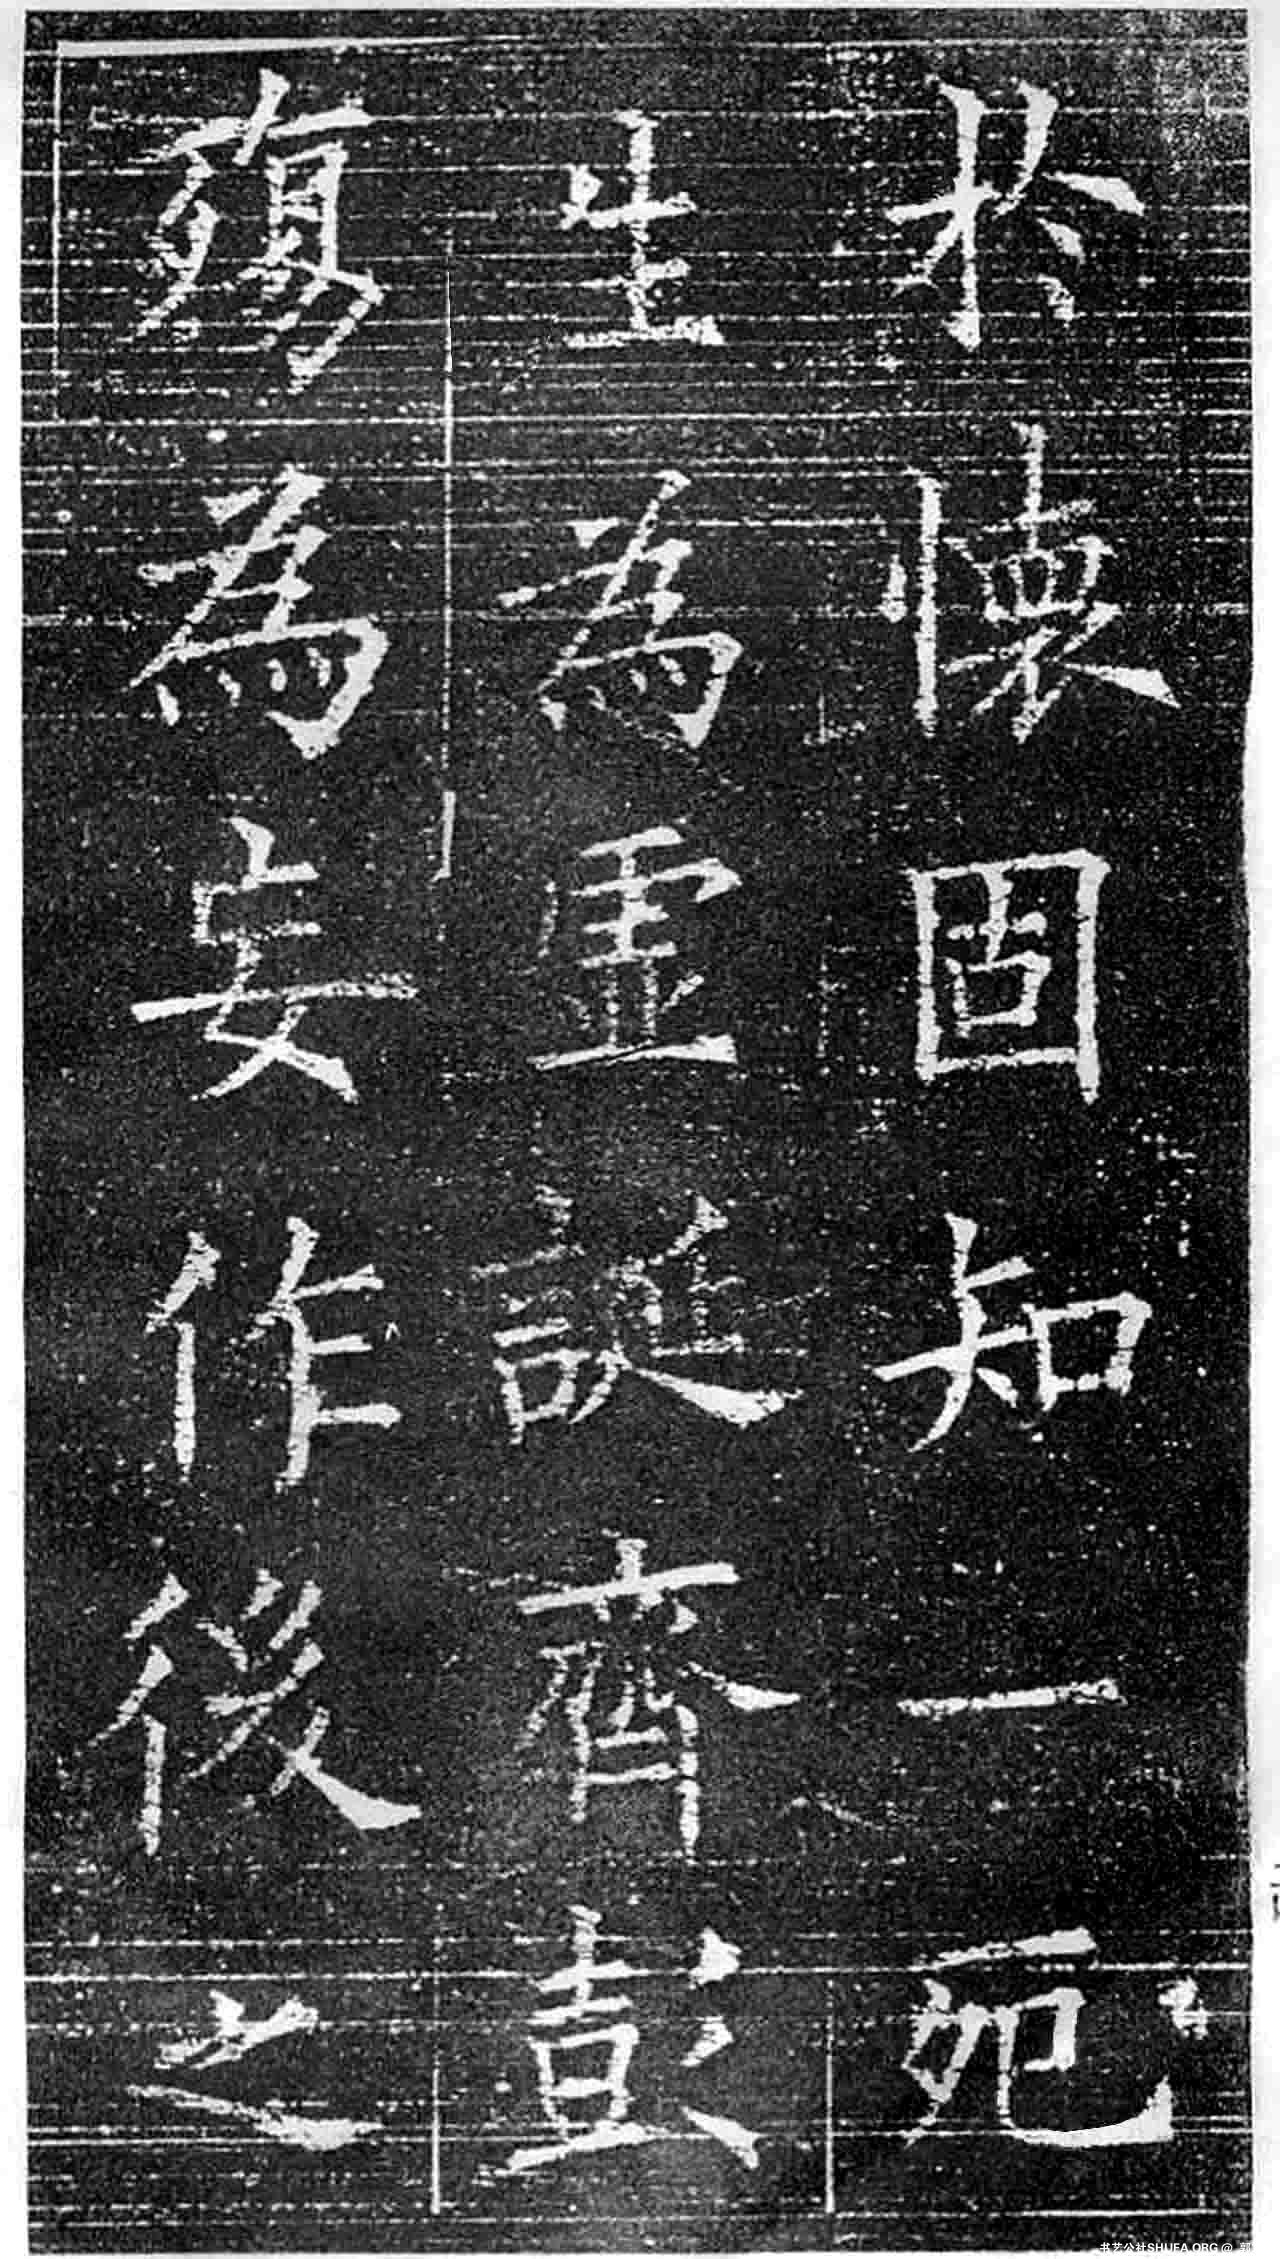 於懷固知一死
生為虛誕齊彭
殤為妄作後之
书艺公社SHUFA.ORG @